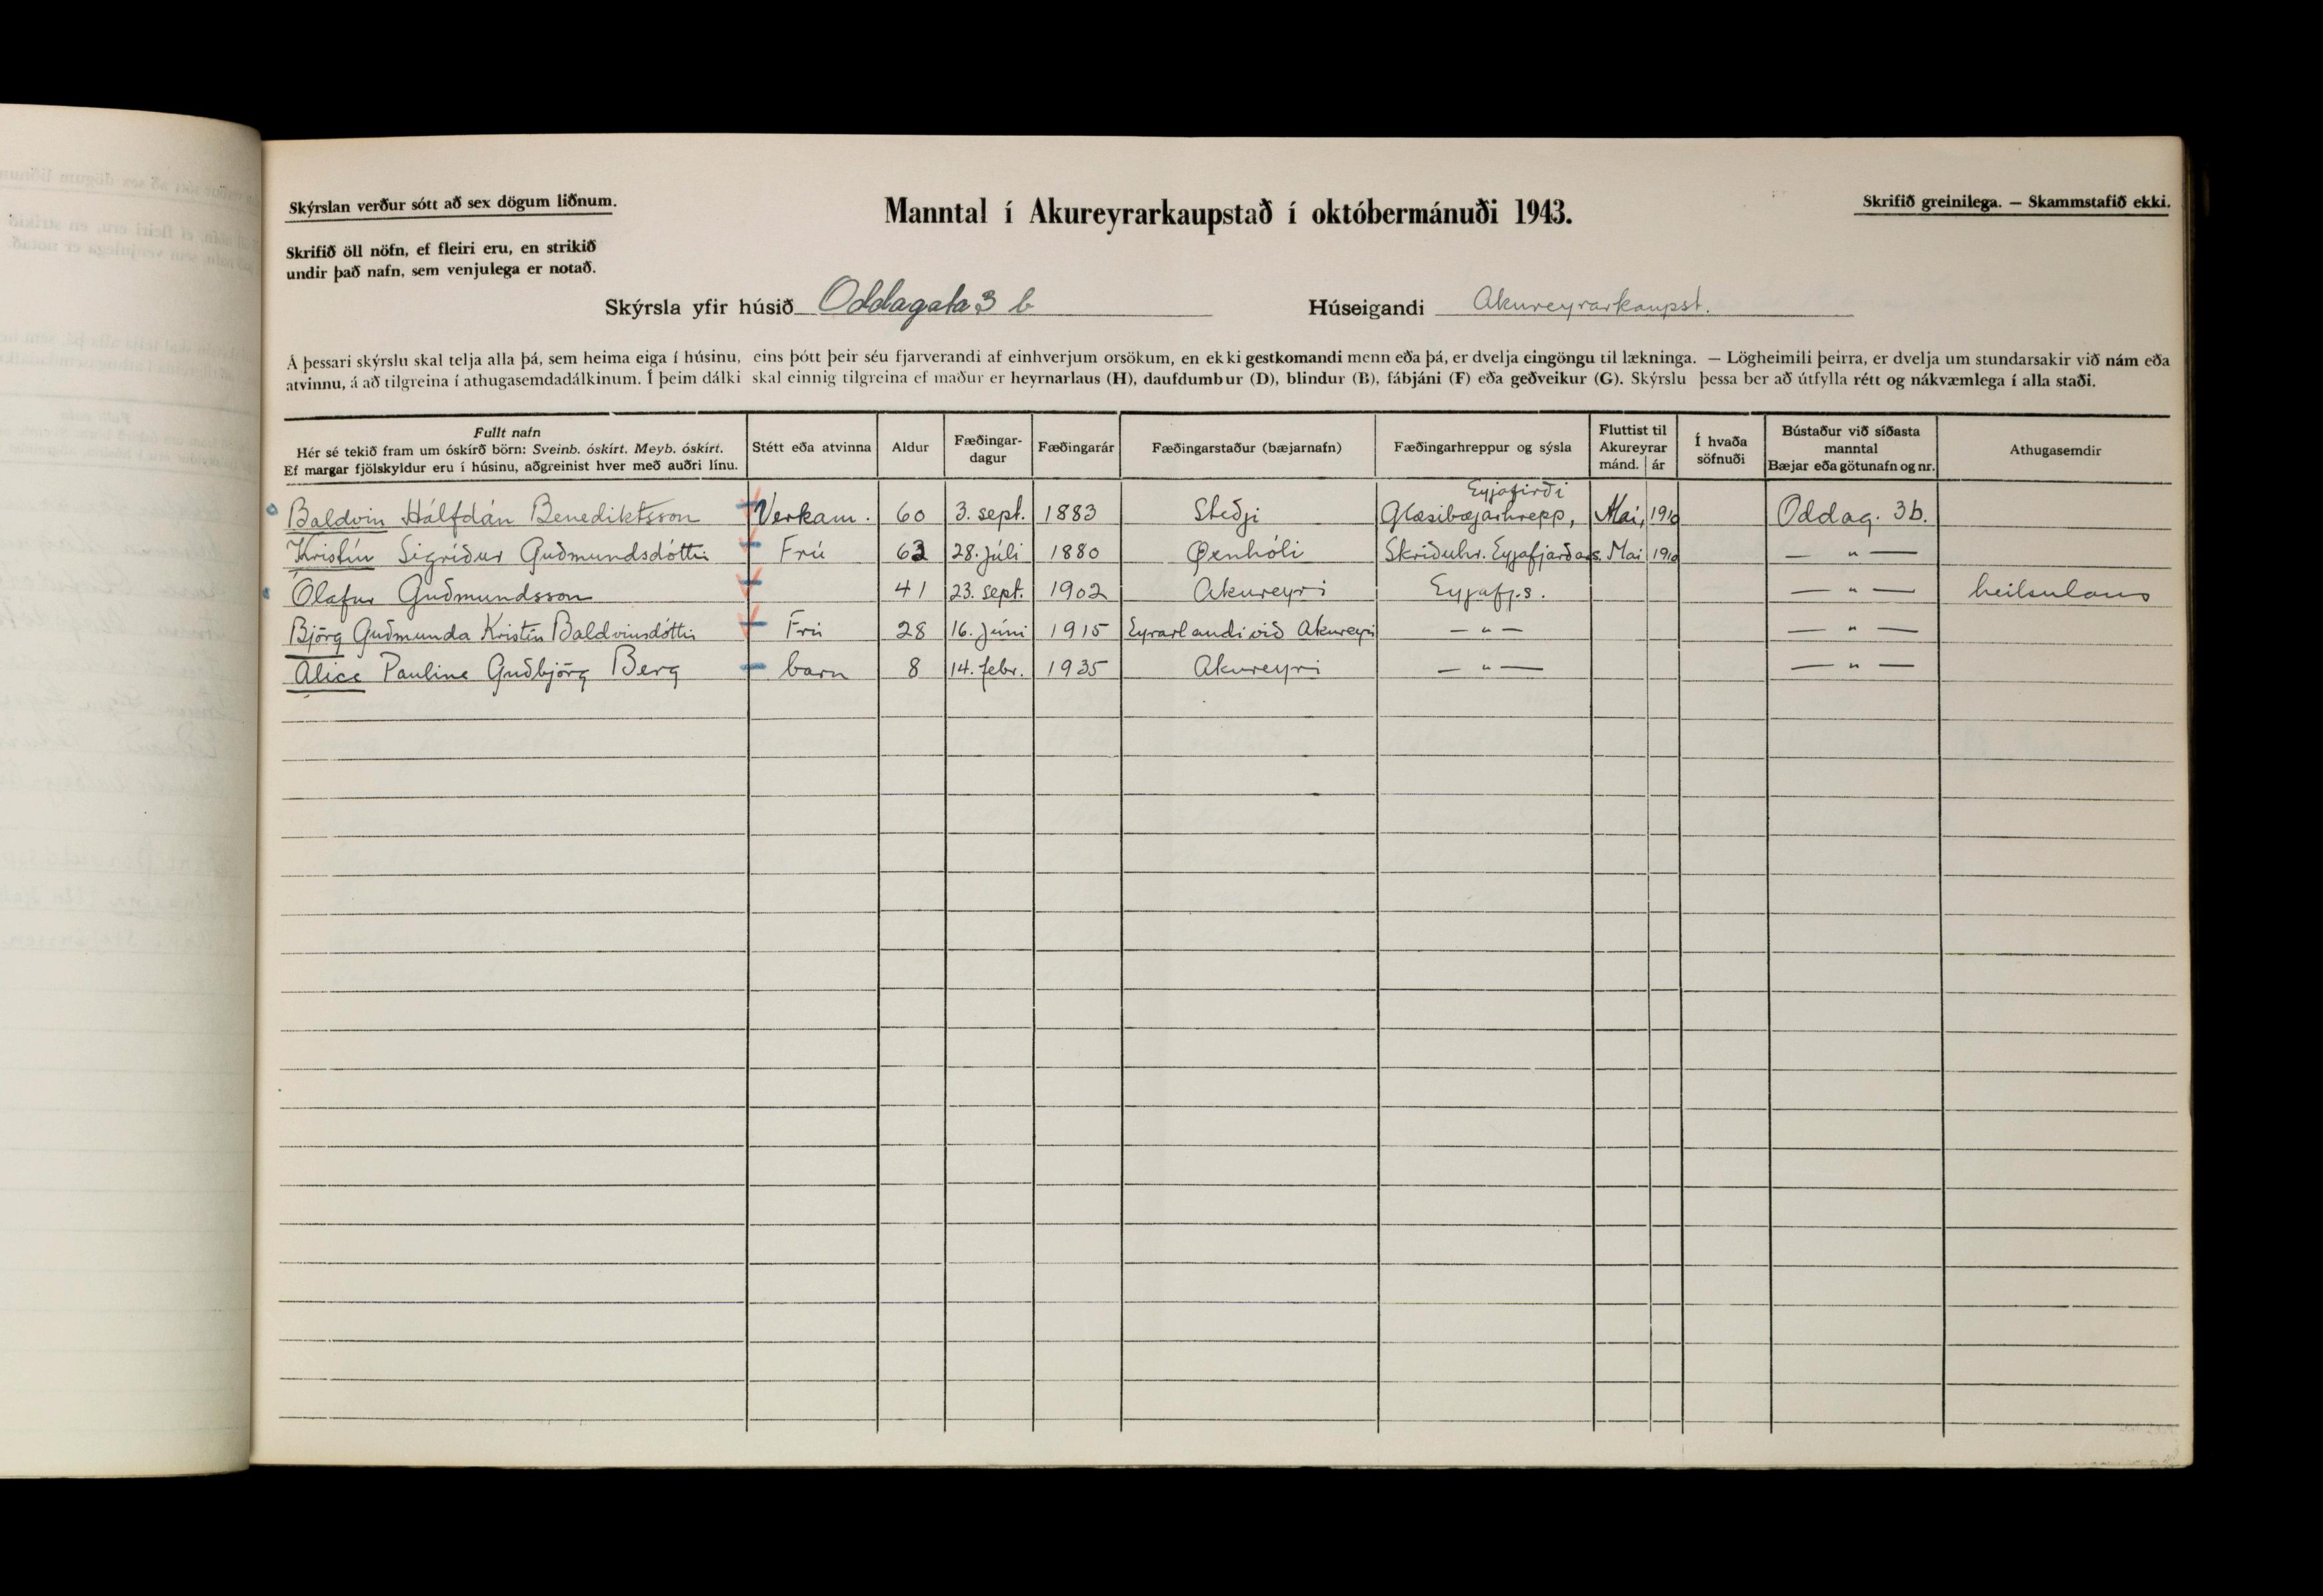 Skýrslan verður sótt að sex dögum liðnum.
Manntal í Akureyrarkaupstað í októbermánuði 1943.
Skrifið greinilega. — Skammstafið ekki.
Skrifið öll nöfn, ef fleiri eru, en strikið
undir það nafn, sem venjulega er notað.
Skýrsla yfir húsið Oddagata 3 b Húseigandi Akureyrarkaupst.
Á þessari skýrslu skal telja alla þá, sem heima eiga í húsinu, eins þótt þeir séu fjarverandi af einhverjum orsökum, en ekki gestkomandi menn eða þá, er dvelja eingöngu til lækninga. — Lögheimili þeirra, er dvelja um stundarsakir við nám eða
atvinnu, á að tilgreina í athugasemdadálkinum. Í þeim dálki skal einnig tilgreina ef maður er heyrnarlaus (H), daufdumbur (D), blindur (B), fábjáni (F) eða geðveikur (G). Skýrslu þessa ber að útfylla rétt og nákvæmlega í alla staði.
Fullt nafn
Hér sé tekið fram um óskírð börn: Sveinb. óskírt. Meyb. óskírt.
Ef margar fjölskyldur eru í húsinu, aðgreinist hver með auðri línu.
Stétt eða atvinna
Aldur
Fæðingar-
dagur
Fæðingarár
Fæðingarstaður (bæjarnafn)
Fæðingarhreppur og sýsla
Fluttist til
Akureyrar
mánd. ár
Í hvaða
söfnuði
Bústaður við síðasta
manntal
Bæjar eða götunafn og nr.
Athugasemdir
Eyjafirði
Baldvin Hálfdán Benediktsson Verkam. 60 3. sept. 1883 Steðji Glæsibæjarhrepp, Mai, 1910 Oddag. 3b.
Kristín Sigríður Guðmundsdóttir Frú 63 28. júlí 1880 Öxnhóli Skriðuhr. Eyjafjarðars. Mai 1910 — " —
Ólafur Guðmundsson 41 23. sept. 1902 Akureyri Eyjafj.s. — " — heilsulaus
Björg Guðmunda Kristín Baldvinsdóttir Frú 28 16. júní 1915 Eyrarlandi við Akureyri — " — — " —
Alice Pauline Guðbjörg Berg barn 8 14. febr. 1935 Akureyri — " — — " —